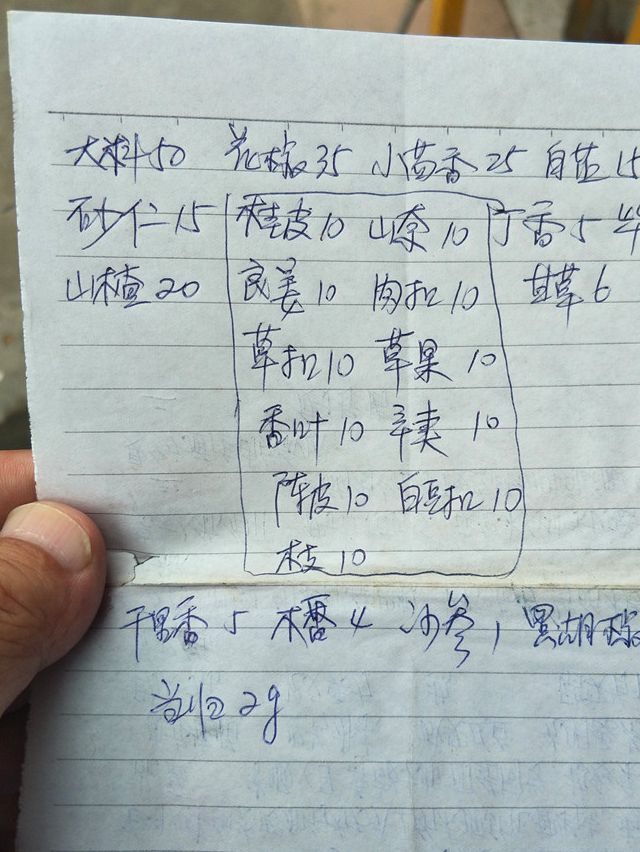 大料50 花椒35 小茴香25 白芷15
砂仁15 桂皮10 山奈10 丁香5
山楂20 良姜10 肉扣10 甘草6
草扣10 草果10
香叶10 辛夷10
陈皮10 白豆扣10
枝10
千里香5 木香4 沙参1 黑胡椒
当归2g